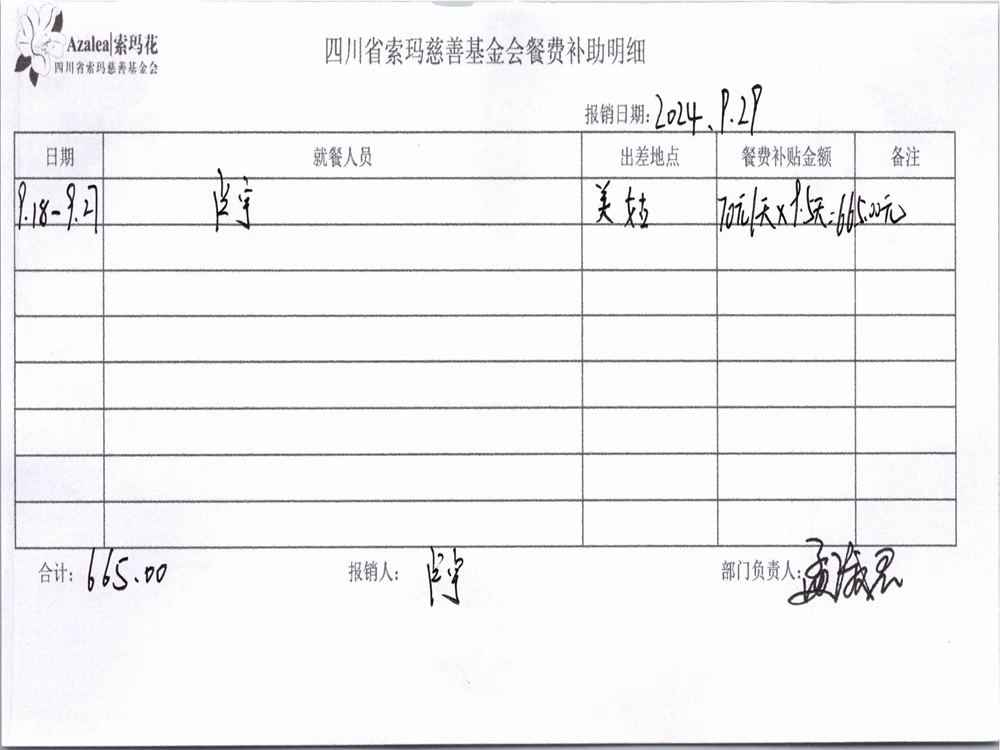 Azalea|索玛花
四川省索玛慈善基金会
四川省索玛慈善基金会餐费补助明细
报销日期: 2024.9.29
日期 就餐人员 出差地点 餐费补贴金额 备注
9.18-9.27 肖宇 美姑 70元/天×9.5天=665.00元
合计: 665.00 报销人: 肖宇 部门负责人: 孟